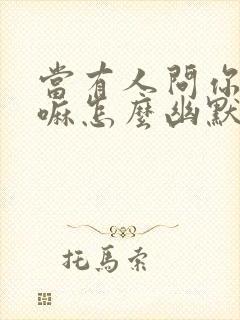 當有人問你
嘛怎麼幽默
托馬索